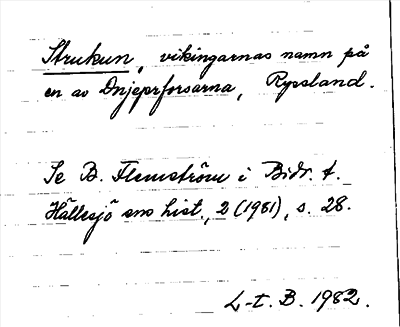 Strukun, vikingarnas namn på
en av Dnjeprforsarna, Ryssland.
Se B. Flemström i Bidr. t.
Hällesjö sns hist., 2 (1981), s. 28.
L-t. B. 1982.